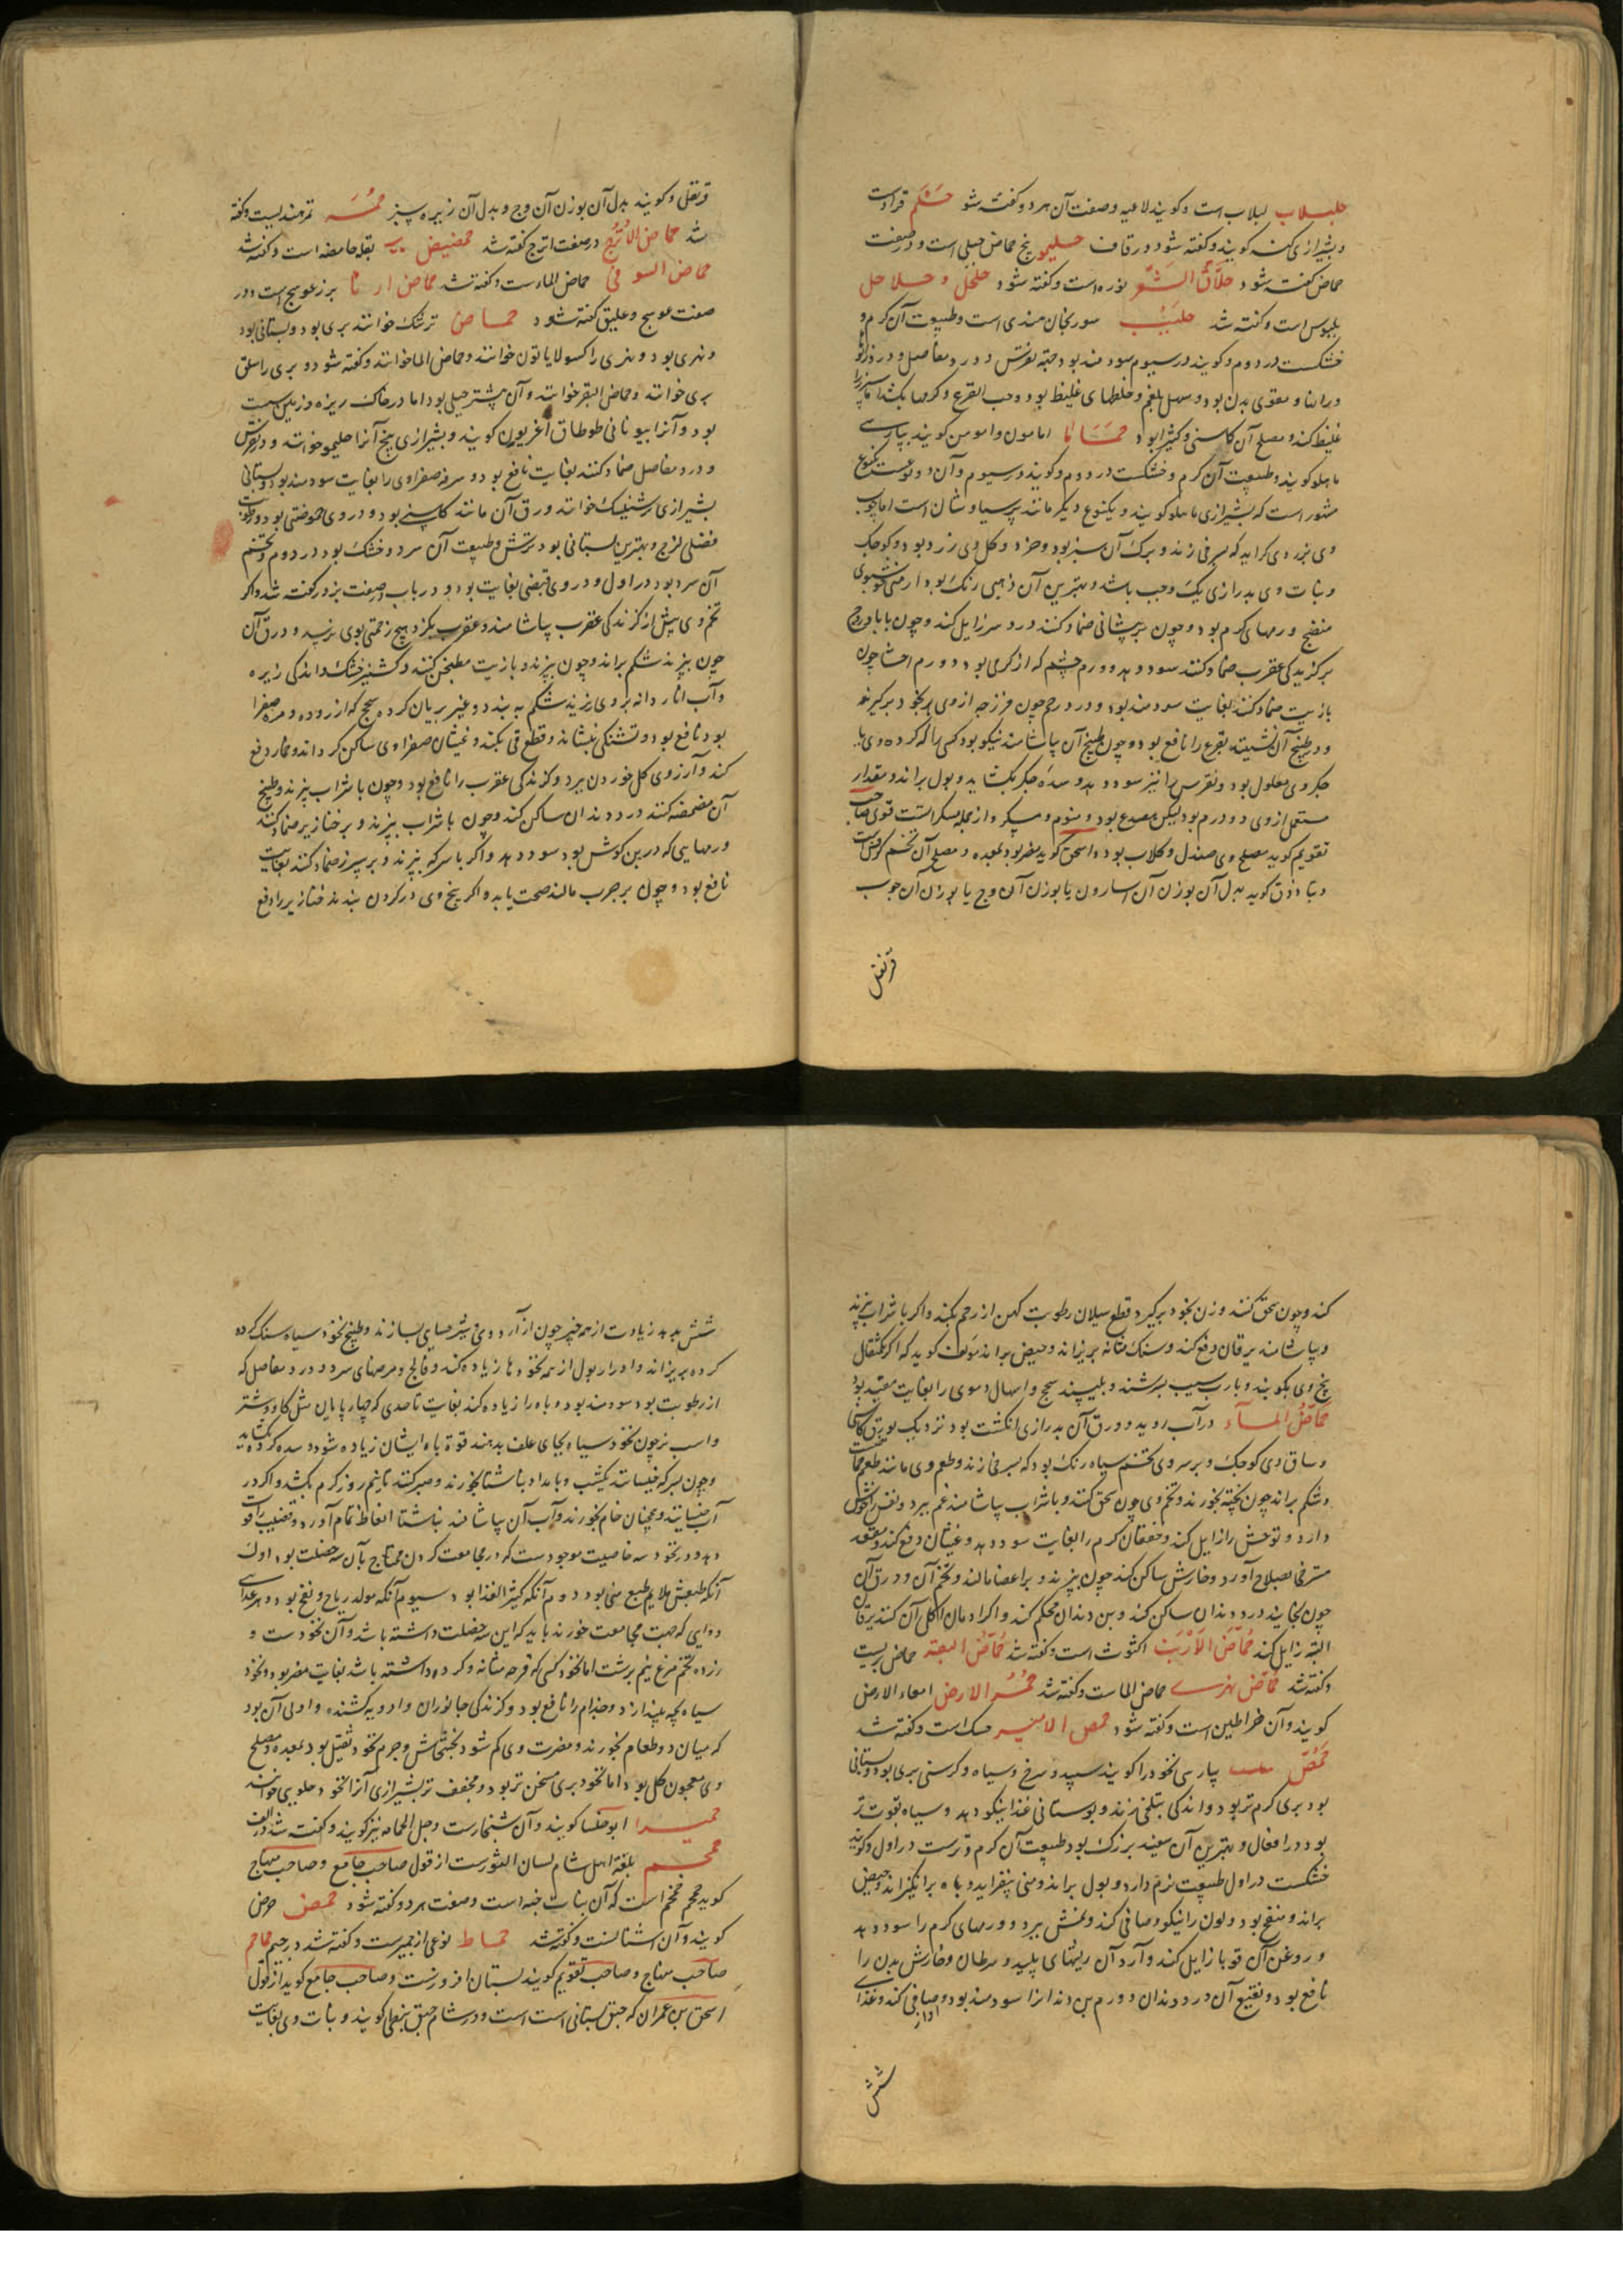 حلبلاب لبلاب است و کویند لاعیه و صفت آن هر دو کفته شود حلم قراد است
و بشیرازی کنه کویند و کفته شود در قاف حلیمو بیخ حماض جبلی است و در صفت
حماض کفته شود حلاق الشعر نوره است و کفته شود حلحل و حلاحل
بلبوس است و کفته شد حلبیب سورنجان هندی است و طبیعت آن کرم و
خشکست در دوم و کویند در سیوم سودمند بود جهة نقرس و درد مفاصل و درد زانو
و مقوی بدن بود و مسهل بلغم و خلطهای غلیظ بود و حب القرع و کرمها بکشد
غلیظ کند و مصلح آن کاسنی و کثیرا بود حماما امامون و امومن کویند بپارسی
ماهلو کویند و طبیعت آن کرم و خشکست در دوم و کویند در سیوم و آن دو نوعست یکنوع
مشهور است که بشیرازی ماهلو کویند و یکنوع دیکر مانند پر سیاوشان است اما چوب
وی بزردی کراید که بسرخی زند و برک آن سبز بود و خرد و کل وی زرد بود و کوچک
و نبات وی بدرازی یک وجب باشد و بهترین آن ذهبی رنک بود ارمنی خوشبوی
منضج ورمهای کرم بود و چون بر پیشانی ضماد کنند درد سر زایل کند و چون با بادروج
بر کزیدکی عقرب ضماد کنند سود دهد و ورم چشم که از کرمی بود و ورم احشا چون
با زیت ضماد کنند بغایت سودمند بود و درد رحم چون فرزجه از وی بخود برکیرند
و در طبیخ آن نشینند نقرع را نافع بود و چون طبیخ آن بیاشامند نیکو بود کسی را که کرده وی یا
جکر وی معلول بود و نقرس را نیز سود دهد و سده جکر بکشاید و بول براند و مقدار
مستعمل از وی دو درم بود لیکن مصدع بود و منوم و مسکر و از جمله مسکراتست قوی صاحب
تقویم کوید مصلح وی صندل و کلاب بود و اسحق کوید مضر بود بمعده و مصلح آن تخم کرفس است
و بنادذق کوید بدل آن بوزن آن اسارون یا بوزن آن وج یا بوزن آن چوب
قرنفل
قرنفلی و کویند بدل آن بوزن آن وج و بدل آن زیره سبز حمر تمر هندیست و کفته
شد حماض الاترج در صفت اترج کفته شد حمضیض بقله حامضه است و کفته شد
حماض السوافی حماض الماء ست و کفته شد حماض ارنا بر زعوسج است و در
صفت عوسج و علیق کفته شود حماض ترشک خوانند بری بود و بستانی بود
و نهری بود و نهری را کسولایاتون خوانند و حماض الما خوانند و کفته شود و بری را سلق
بری خوانند و حماض البقر خوانند و آن بیشتر جبلی بود اما در خاک ریزه و زمین
بود و آنرا بیونانی طوطاق اغریون کویند و بشیرازی بیخ آنرا حلیمو خوانند و در نقرس
و درد مفاصل ضماد کنند بغایت نافع بود و سرفه صفراوی را بغایت سودمند بود و بستانی
بشیرازی ترشینک خوانند ورق آن مانند کاسنی بود و در وی حموضتی بود و رطوبت
فضلی لزج و بهترین بستانی بود ترش و طبیعت آن سرد و خشک بود در دوم و تخم
آن سرد بود در اول و در وی قبضی بغایت بود و در باب صفت بزور کفته شد و اکر
تخم وی پیش از کزندکی عقرب بیاشامند و عقرب بکزد هیچ زحمتی بوی نرسد و ورق آن
چون بپزند شکم براند و چون بپزند و با زیت مطبخن کنند و کشنیز خشک و اندکی زیره
و آب انار دانه بر وی ریزند شکم به بندد و غیر بریان کرده سحج که از روده و مره صفرا
بود نافع بود و تشنکی بنشاند و قطع قی بکند و غثیان صفراوی ساکن کرداند و خمار دفع
کند و آرزوی کل خوردن ببرد و کزندکی عقرب را نافع بود و چون با شراب بپزند و بطبیخ
آن مضمضه کنند درد دندان ساکن کند و چون با شراب بپزند و بر خنازیر ضماد کنند
ورمهایی که در بن کوش بود سود دهد و اکر با سرکه بپزند و بر سپرز ضماد کنند بغایت
نافع بود و چون بر جرب مالند صحت یابد و اکر بیخ وی در کردن بندند خنازیر را دفع
کند و چون سحق کنند و زن بخود برکیرد قطع سیلان رطوبت کهن از رحم بکند و اکر با شراب بپزند
و بیاشامند یرقان دفع کند و سنک مثانه بریزاند و حیض براند مولف کوید که اکر یکمثقال
بیخ وی بکوبند و با رب سیب بسرشند و بلیسند سحج و اسهال دموی را بغایت مفید بود
حماض الماء در آب روید و ورق آن بدرازی انکشت بود نزدیک بورق کاسنی
و ساق وی کوچک و بر سر وی تخم سیاه رنک بود که بسرخی زند و طعم وی مانند طعم حماض
و شکم براند چون پخته بخورند و تخم وی چون سحق کنند و با شراب بیاشامند غم ببرد و نفس را خوش
دارد و توحش را زایل کند و خفقان کرم را بغایت سود دهد و غثیان دفع کند و مقعد
مسترخی بصلاح آورد و خارش ساکن کند چون بپزند و بر اعضا مالند و تخم آن و ورق آن
چون بخایند درد دندان ساکن کند و بن دندان محکم کند و اکر ادمان اکل آن کنند یرقان
البته زایل کند حماض الارنب اکشوث است و کفته شد حماض البقر حماض بریست
و کفته شد حماض نهری حماض الماست و کفته شد حمر الارض امعاء الارض
کویند و آن خراطین است و کفته شود حمص الامیر حسک است و کفته شد
حمص بپارسی نخود را کویند سپید و سرخ و سیاه و کرسنی بری بود و بستانی
بود بری کرم تر بود و اندکی بتلخی زند و بوستانی غذا نیکو دهد و سیاه بقوت تر
بود در افعال و بهترین آن سفید بزرک بود طبیعت آن کرم و ترست در اول و کویند
خشکست در اول طبیعت نرم دارد و بول براند و منی بیفزاید و باه برانکیزاند و حیض
براند و منفخ بود و لون را نیکو و صافی کند و نمش ببرد و ورمهای کرم را سود دهد
و روغن آن قوبا زایل کند و آرد آن ریشهای پلید و سرطان و خارش بدن را
نافع بود و نقیع آن درد دندان و ورم بن دندانرا سودمند بود و آواز صافی کند و غذای
شش
شش بدهد زیادت از همه چیز چون از آرد وی و شیر حسای بسازند و طبیخ نخود سیاه سنک کرده
کرده بریزاند و ادرار بول از همه نخودها زیاده کند و فالج و مرضهای سرد و درد مفاصل که
از رطوبت بود سودمند بود و باه را زیاده کند بغایت تا حدی که چهارپایان مثل کاو و شتر
و اسب نر چون نخود سیاه بجای علف بدهند قوة باه ایشان زیاده شود و سده کرده بکشاید
و چون بسرکه خیسانند یکشب و بامداد بناشتا بخورند و صبر کنند تا نیم روز کرم بکشد و اکر در
آب خیسانند و همچنان خام بخورند و آب آن بیاشامند بناشتا انعاظ تمام آورد و قضیب را قوت
دهد و در نخود سه خاصیت موجودست که در مجامعت کردن محتاج بآن سه خصلت بود اول
آنکه طبعش ملایم طبع منی بود دوم آنکه کثیر الغذا بود سیوم آنکه مولد ریاح و نفخ بود و هر غذایی
دوایی که جهت مجامعت خورند باید که این سه خصلت داشته باشد و آن نخودست و
زرده تخم مرغ نیم برشت اما نخود کسی که قرحه مثانه و کرده داشته باشد بغایت مضر بود و نخود
سیاه بچه بیندازد و جذام را نافع بود و کزندکی جانوران و ادویه کشنده و اولی آن بود
که میان دو طعام بخورند و مضرت وی کم شود بخشخاش و جرم نخود ثقیل بود بمعده و مصلح
وی معجون کل بود اما نخود بری مسخن تر بود و مجفف تر بشیرازی آنرا نخود حلوبی خوانند
حمیرا ابوحلسا کویند و آن شنجارست و جل الحامه نیز کویند و کفته شد در الف
حمحم بلغة اهل شام لسان الثورست از قول صاحب جامع و صاحب منهاج
کوید حمحم خمخم است که آن نبات خبه است و صفت هر دو کفته شود حمض حرض
کویند و آن اشنانست و کفته شد حماط نوعی از جمیزست و کفته شد در جیم حماحم
صاحب منهاج و صاحب تقویم کویند بستان افروزست و صاحب جامع کوید از قول
اسحق بن عمران که حبق بستانی است و در شام حبق نبطی کویند و نبات وی بغایت